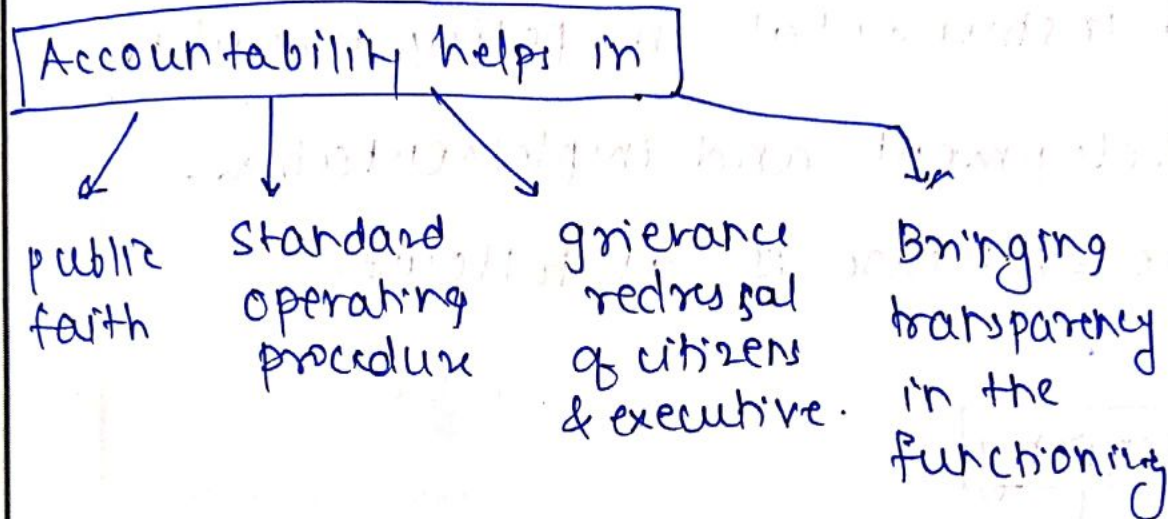 Accountability helps in
public
faith
standard
operating
procedure
grievance
redressal
of citizens
& executive.
Bringing
transparency
in the
functioning